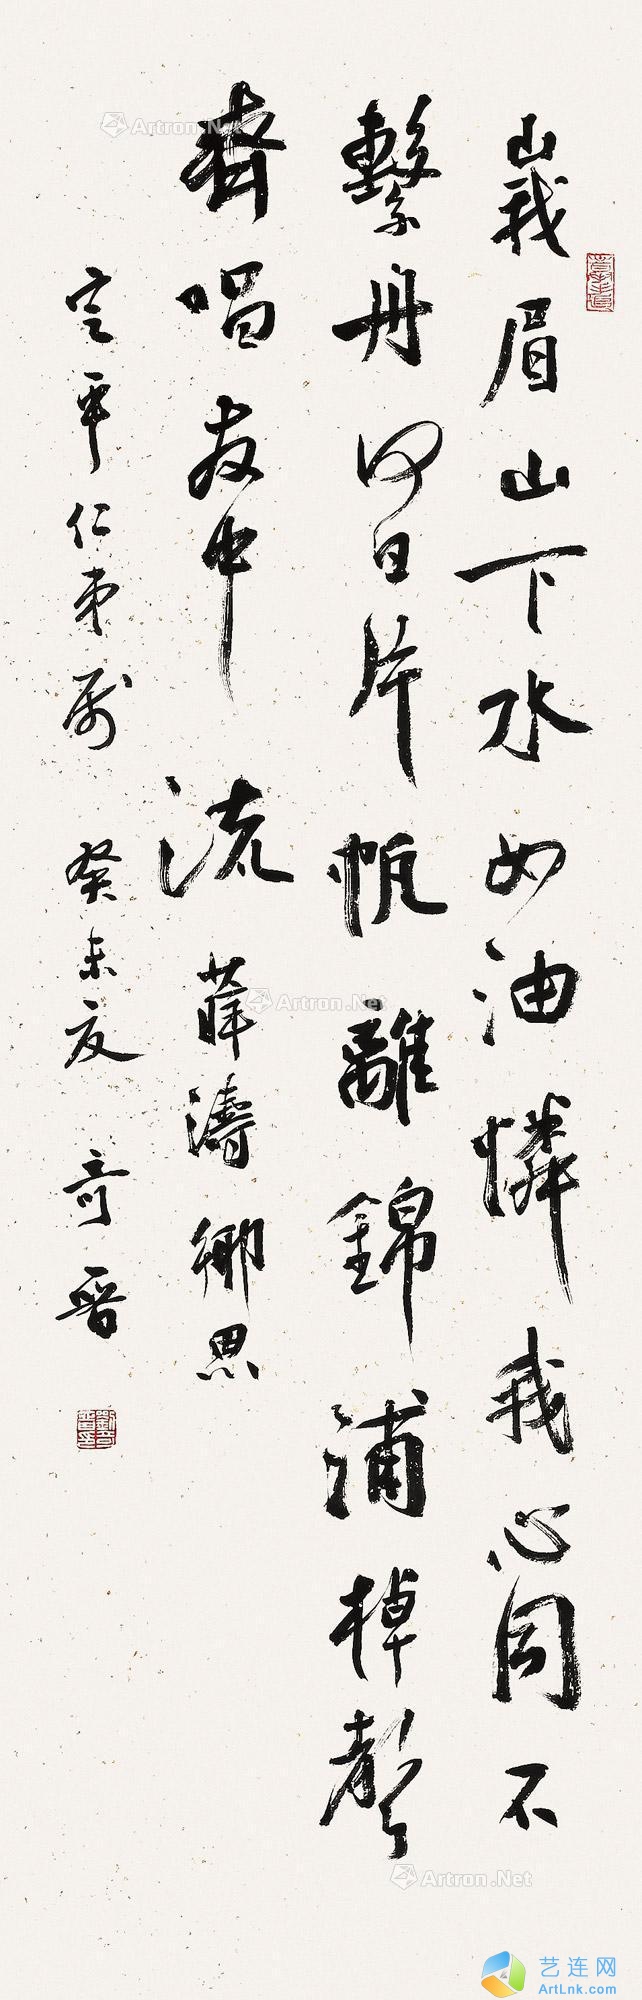 峩眉山下水如油憐我心同不
繫舟何日片帆離錦浦棹聲
齊唱发中流 薛濤 鄉思
定平仁弟属 癸未夏 奇晋
劉奇晉印
Artron.Net
Artron.Net
Artron.Net
艺连网
ArtLnk.com